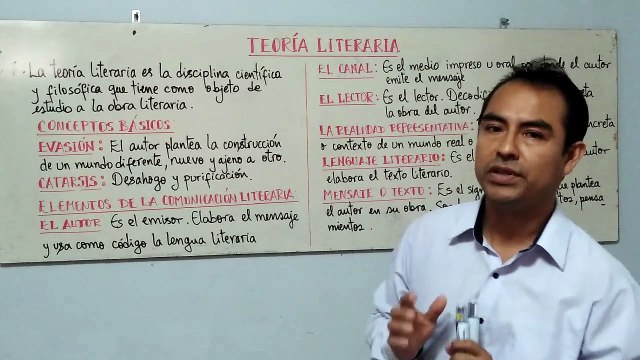 TEORÍA LITERARIA
La teoría literaria es la disciplina científica
y filosófica que tiene como objeto de
estudio a la obra literaria.
CONCEPTOS BÁSICOS
EVASIÓN: El autor plantea la construcción
de un mundo diferente, nuevo y ajeno a otro.
CATARSIS: Desahogo y purificación.
ELEMENTOS DE LA COMUNICACIÓN LITERARIA
EL AUTOR Es el emisor. Elabora el mensaje
y usa como código la lengua literaria
EL CANAL: Es el medio impreso u oral el autor
emite el mensaje
EL LECTOR: Es el lector.
la obra del autor.
LA REALIDAD REPRESENTATIVA:
o contexto de un mundo real o
LENGUAJE LITERARIO: Es el autor
elabora el texto literario.
MENSAJE O TEXTO: Es el plantea
el autor en su obra.
mientos.